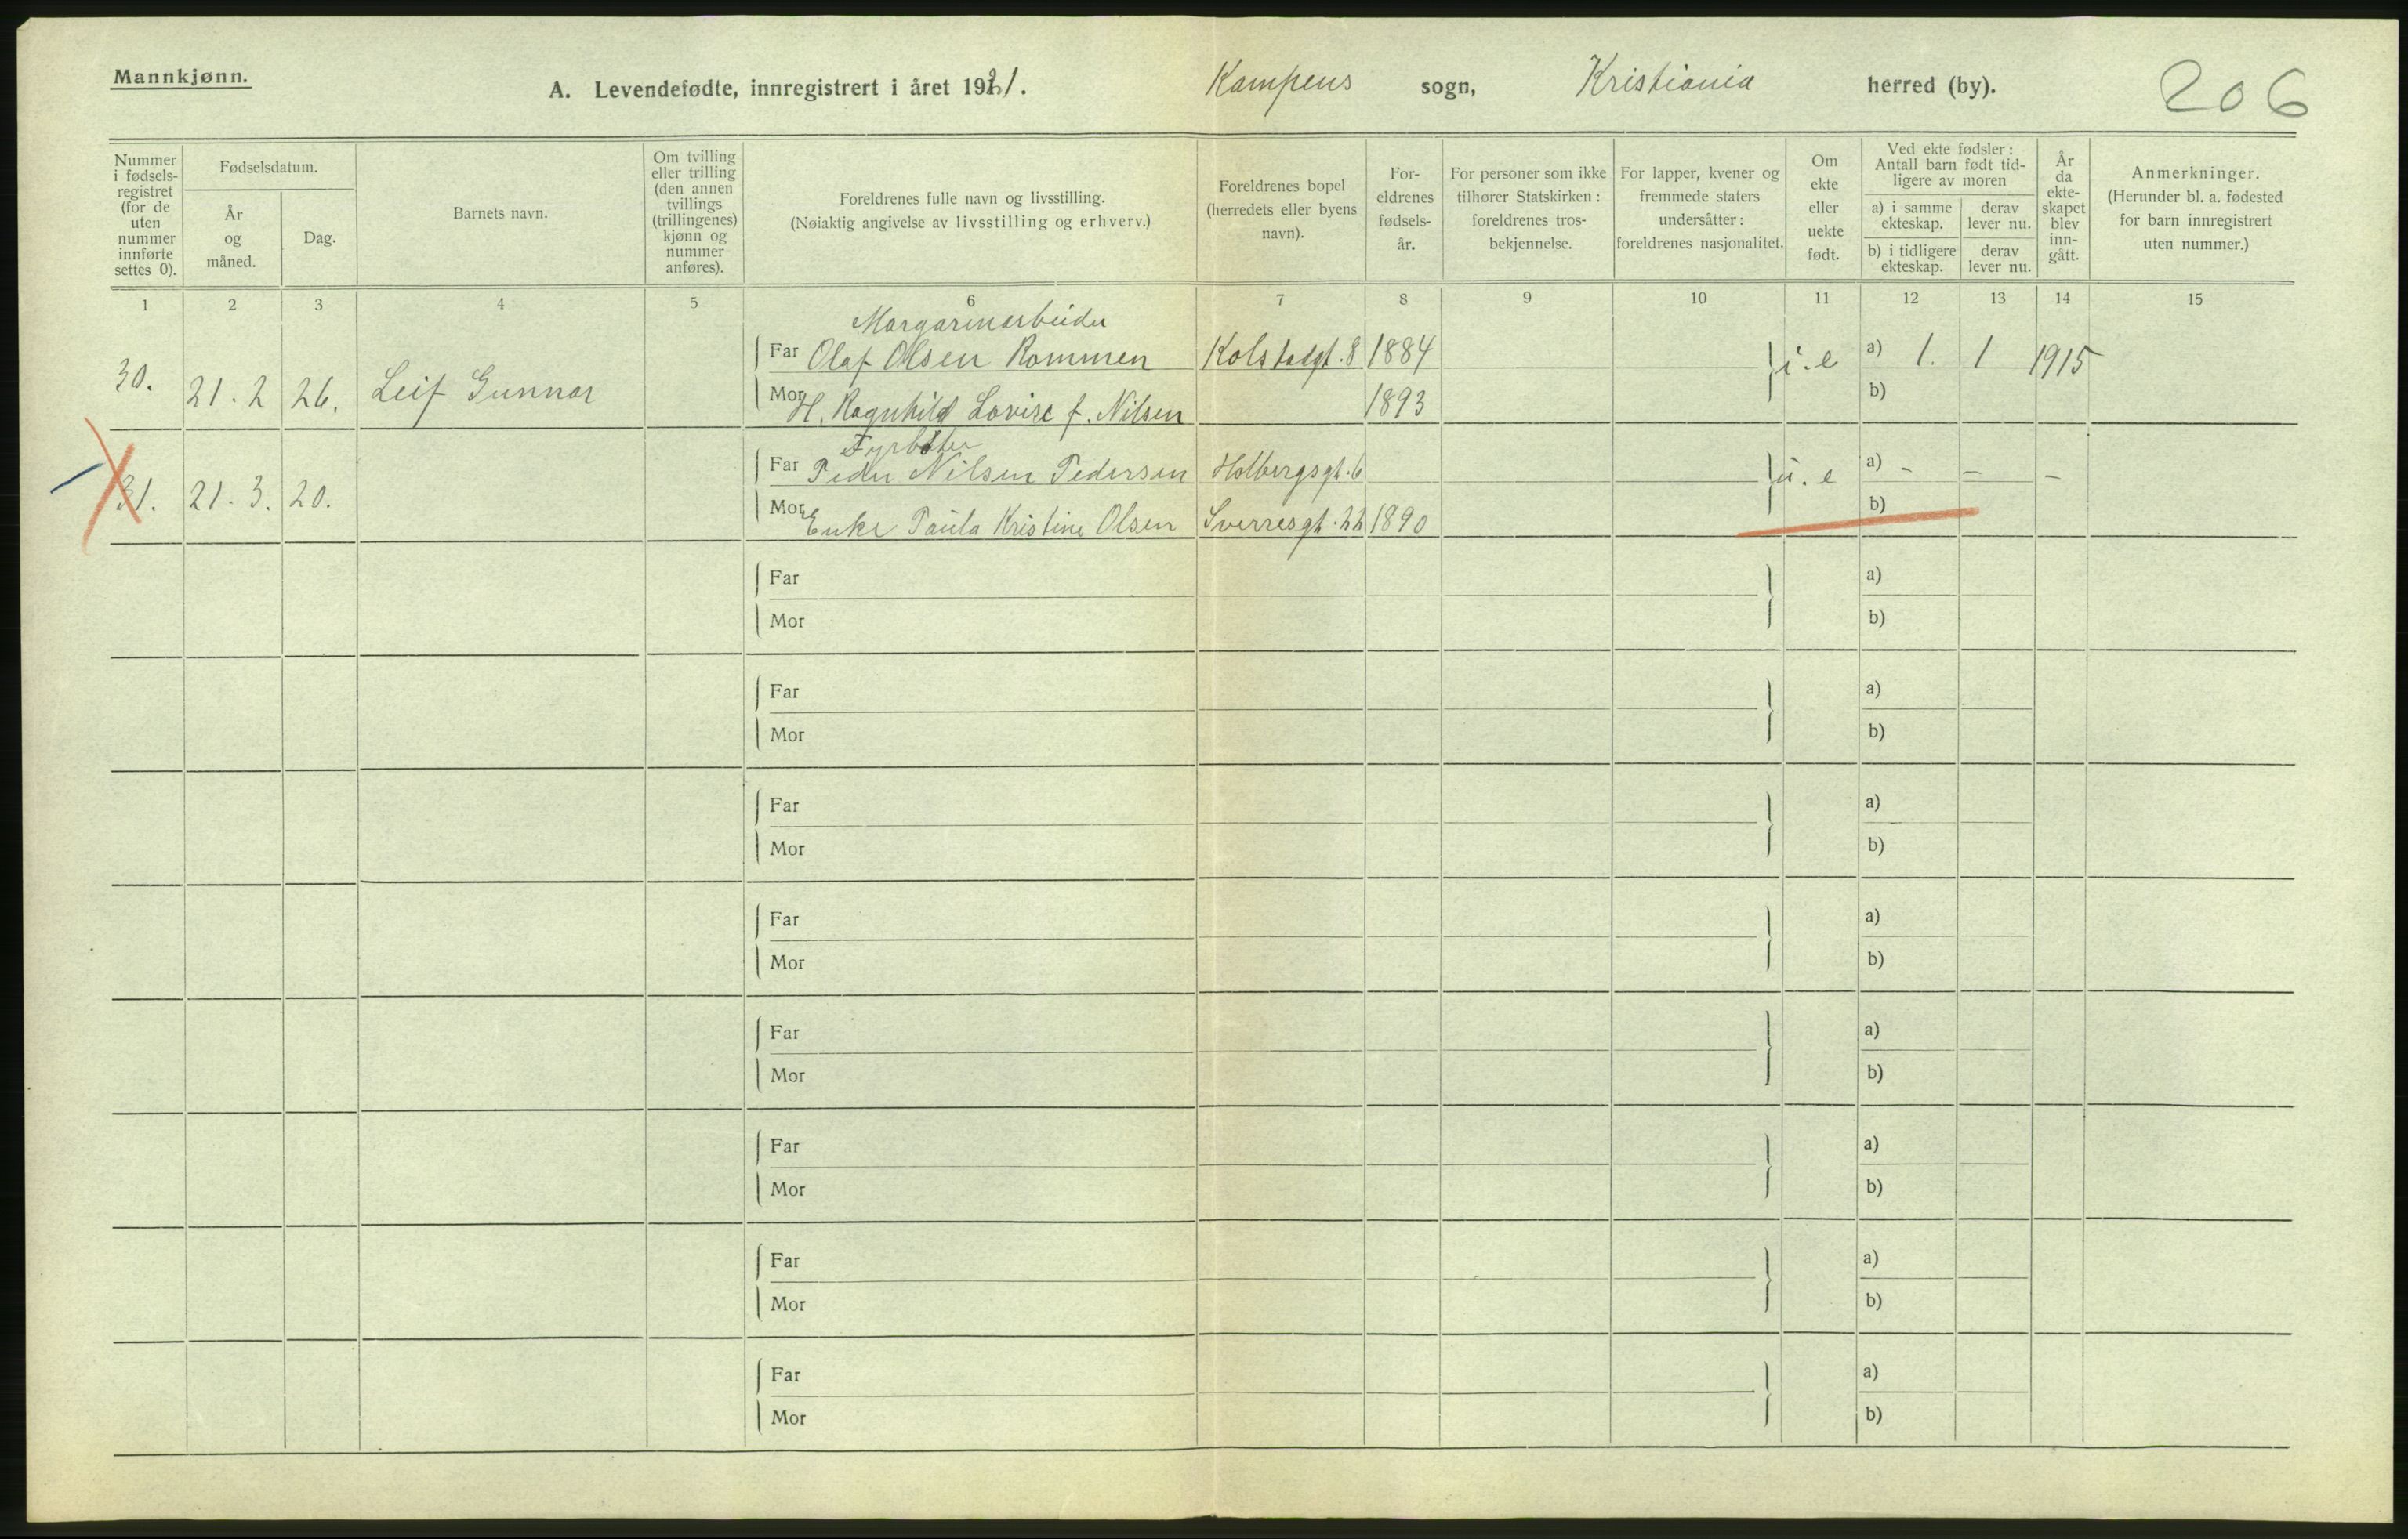 Mannkjønn.
A. Levendefødte, innregistrert i året 1921. Kampens sogn, Kristiania herred (by). 206
Nummer i fødsels-registret (for de uten nummer innførte settes 0).
Fødselsdatum.
År og måned.
Dag.
Barnets navn.
Om tvilling eller trilling (den annen tvillings (trillingenes) kjønn og nummer anføres).
Foreldrenes fulle navn og livsstilling.
(Nøiaktig angivelse av livsstilling og erhverv.)
Foreldrenes bopel (herredets eller byens navn).
For-eldrenes fødsels-år.
For personer som ikke tilhører Statskirken: foreldrenes tros-bekjennelse.
For lapper, kvener og fremmede staters undersåtter: foreldrenes nasjonalitet.
Om ekte eller uekte født.
Ved ekte fødsler: Antall barn født tid-ligere av moren
a) i samme ekteskap.
derav lever nu.
b) i tidligere ekteskap.
derav lever nu.
År da ekte-skapet blev inn-gått.
Anmerkninger.
(Herunder bl. a. fødested for barn innregistrert uten nummer.)
1 2 3 4 5 6 7 8 9 10 11 12 13 14 15
Margarinarbeider
Far Olaf Olsen Rommen Kolstadgt. 8 1884 a) 1. 1 1915
30. 21. 2 26. Leif Gunnar i. e
Mor H. Ragnhild Lovise f. Nilsen 1893 b)
Fyrbøter
Far Peder Nilsen Pedersen Holbergsgt. 6 a) - - -
31. 21. 3. 20. u. e
Mor Enke Paula Kristine Olsen Sverresgt. 22 1890 b)
Far a)
Mor b)
Far a)
Mor b)
Far a)
Mor b)
Far a)
Mor b)
Far a)
Mor b)
Far a)
Mor b)
Far a)
Mor b)
Far a)
Mor b)